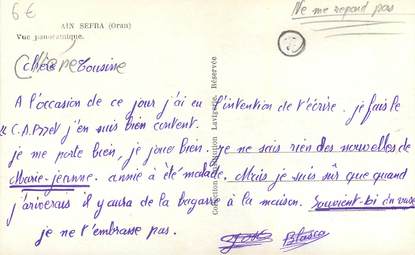 6€
AIN SEFRA (Oran)
Vue panoramique.
Ne me repond pas
Chère Cousine
A l'occasion de ce jour j'ai eu l'intention de t'écrire. je fais le
j'en suis bien content.
je me porte bien, je joue bien. je ne sais rien des nouvelles de
Marie-jeanne. annie a été malade. Mais je suis sûr que quand
j'arriverais il y aura de la bagarre à la maison. Souvient-toi
je ne t'embrasse pas.
Collection Lavigne, Réservée